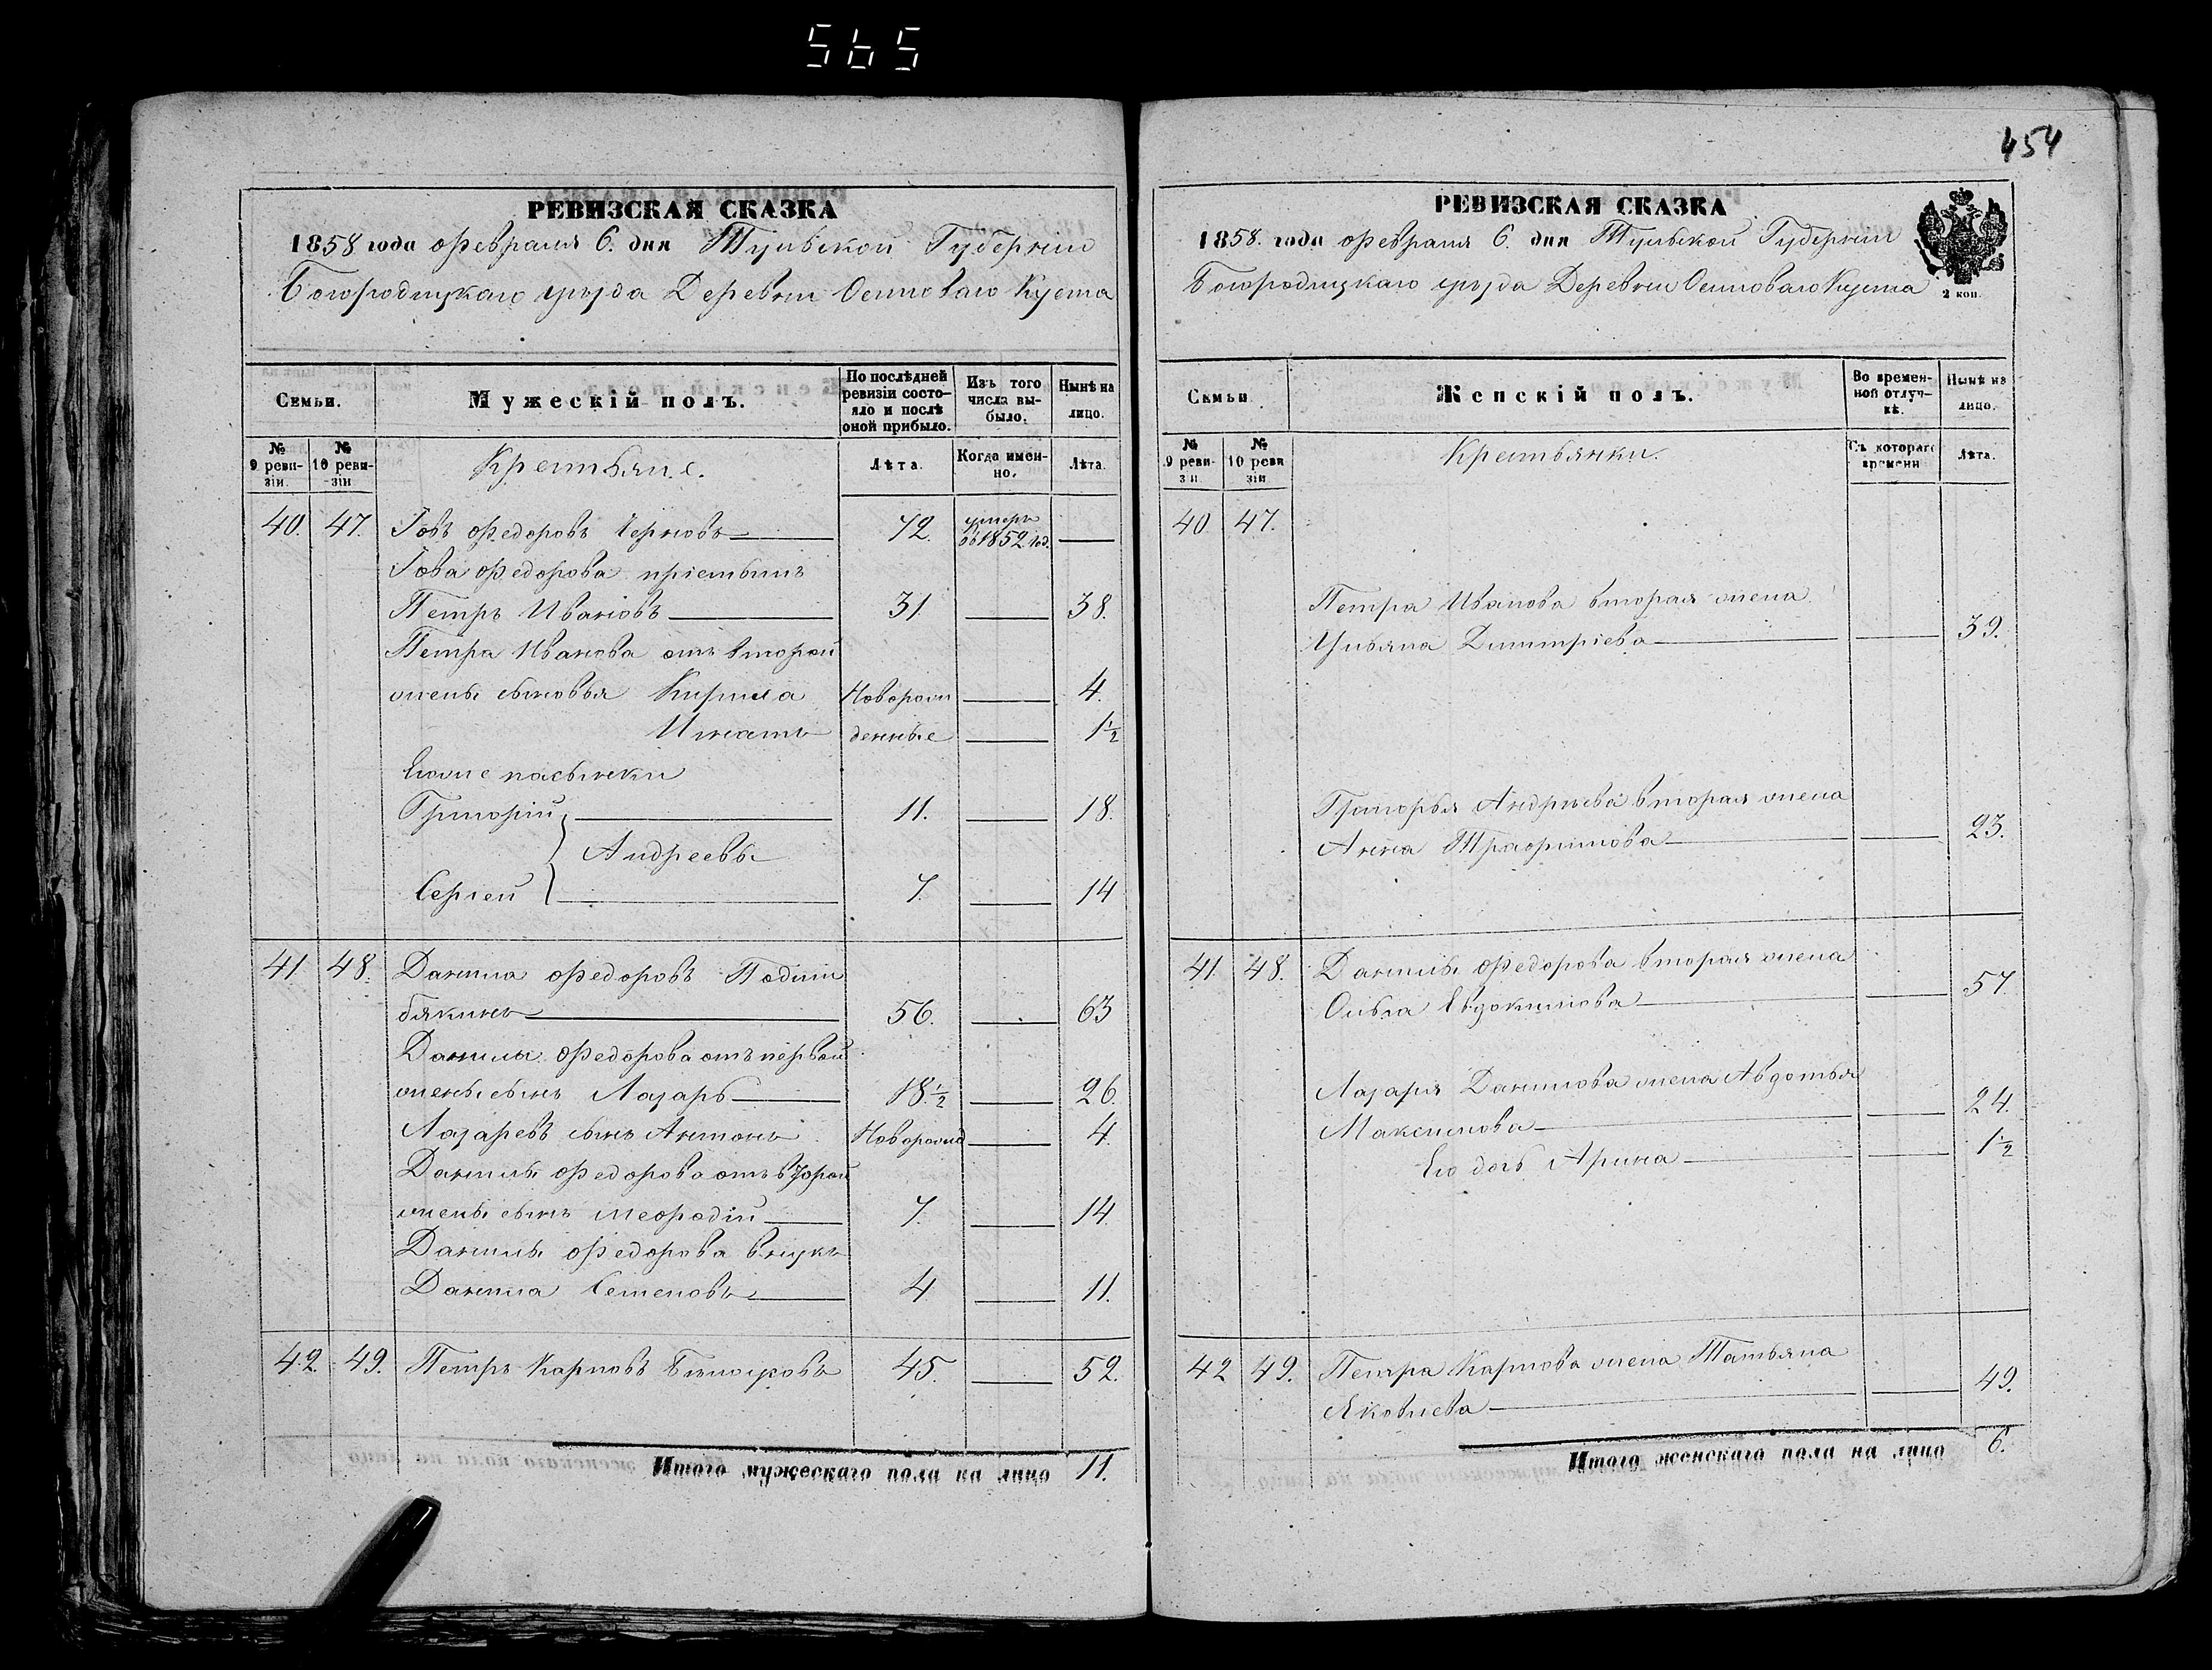 565
454
РЕВИЗСКАЯ СКАЗКА
1858 года Февраля 6. дня Тульской Губерніи
Богородицкаго уѣзда Деревни Осиноваго Куста
Семьи.
Мужескій полъ.
По послѣдней ревизіи состояло и послѣ оной прибыло.
Изъ того числа выбыло.
Нынѣ на лицо.
№ 9 ревизіи.
№ 10 ревизіи
Крестьяне.
Лѣта.
Когда именно.
Лѣта.
40. 47. Іовъ Федоровъ Черновъ 72. умеръ въ 1852 год.
Іова Федорова пріемышъ
Петръ Ивановъ 31. 38.
Петра Иванова отъ второй
жены сыновья Кирила Новорож 4.
Игнатъ денные 1½
Егоже пасынки
Григорій 11. 18.
Андреевы
Сергей 7. 14
41 48. Данила Федоровъ Подши
бякинъ 56. 63
Данилы Федорова отъ первой
жены сынъ Лазарь 18.½ 26.
Лазаревъ сынъ Антонъ Новорожд 4.
Данилы Федорова отъ второй
жены сынъ Мефодій 7. 14.
Данилы Федорова внукъ
Данила Семеновъ 4 11.
42. 49. Петръ Карповъ 45. 52.
Итого мужескаго пола на лицо 11.
РЕВИЗСКАЯ СКАЗКА
1858. года Февраля 6. дня Тульской Губерніи
Богородицкаго уѣзда Деревни Осиноваго Куста
2 коп.
Семьи
Женскій полъ.
Во временной отлучкѣ.
Нынѣ на лицо.
№ 9 ревизіи.
№ 10 ревизіи
Крестьянки.
Съ котораго времени
Лѣта.
40. 47.
Петра Иванова вторая жена
Ульяна Дмитріева 39.
Григорья Андрѣева вторая жена
Анна Трафимова 23.
41. 48. Данилы Федорова вторая жена
Ольга Евдокимова 57
Лазаря Данилова жена Авдотья
Максимова 24.
Его дочь Арина 1½
42 49. Петра Карпова жена Татьяна
Яковлева 49.
Итого женскаго пола на лицо 6.